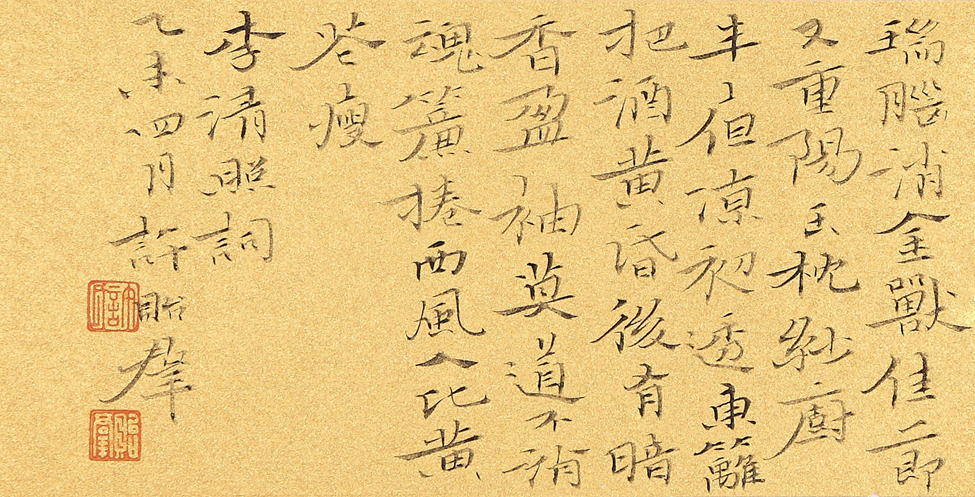 瑞腦消金獸佳節
又重陽玉枕紗廚
半但凉初透東籬
把酒黃昏後有暗
香盈袖莫道不消
魂簾捲西風人比黃
花瘦
李清照詞
乙未四月許昭羣